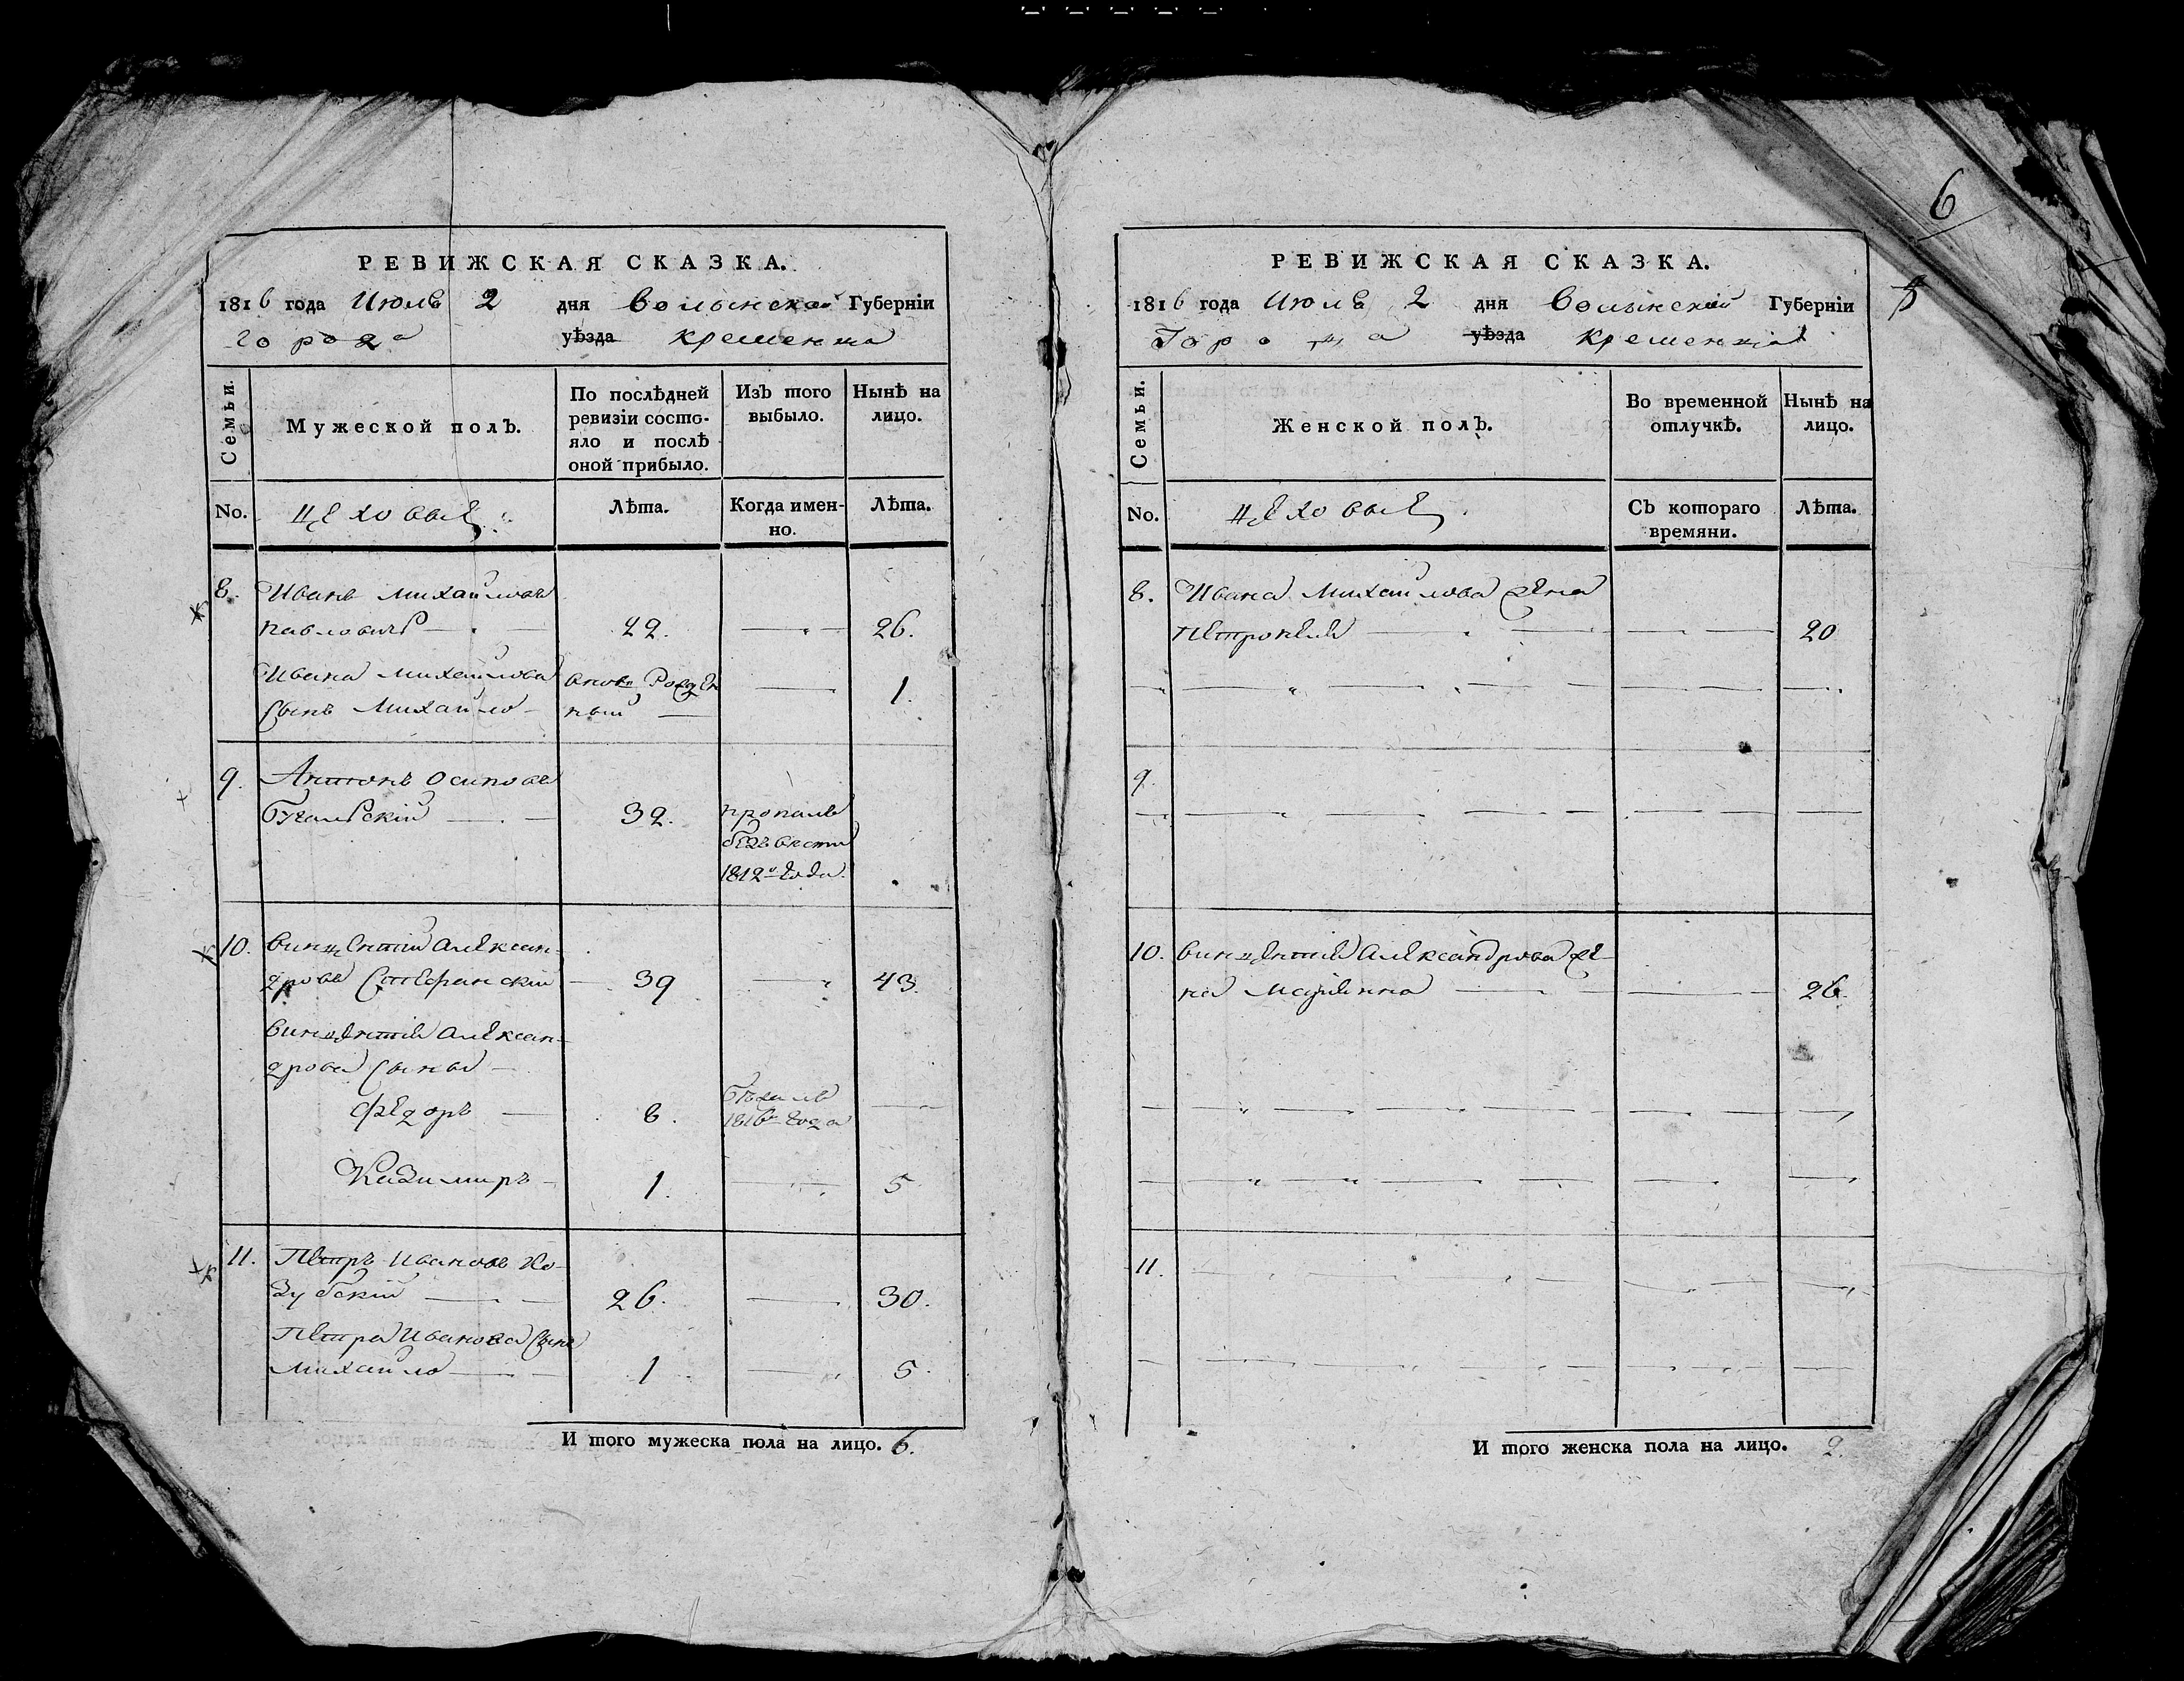 РЕВИЖСКАЯ СКАЗКА.
1816 года Июля 2 дня Волынской Губерніи
города уѣзда Кременца
Семьи.
Мужеской полъ.
По послѣдней ревизіи состо-
яло и послѣ
оной прибыло.
Изъ того
выбыло.
Нынѣ на
лицо.
No.
цеховые
Лѣта.
Когда имен-
но.
Лѣта.
8. Иванъ Михайловъ
Павловичъ 22. 26.
Ивана Михайлова вновь рожден
сынъ Михайло ный 1.
9. Антонъ Осиповъ
32. пропалъ
безъ вести
1812го года.
10. Винцентий Алексан-
дровъ Стефанский 39 43.
Винцентия Алексан-
дрова сыны
Федоръ 8. 1816го года
Казимиръ 1. 5
11. Петръ Ивановъ Ко-
зубский 26. 30.
Петра Иванова сынъ
Михайло 1 5.
И того мужеска пола на лицо. 6.
6
РЕВИЖСКАЯ СКАЗКА.
1816 года Июля 2 дня Волынской Губерніи
Города уѣзда Кременца
Семьи.
Женской полъ.
Во временной
отлучкѣ.
Нынѣ на
лицо.
No.
цеховые
Съ котораго
времяни.
Лѣта.
8. Ивана Михайлова жена
Петронеля 20
9.
10. Винцентия Александрова же-
на Марианна 26.
11.
И того женска пола на лицо. 2.